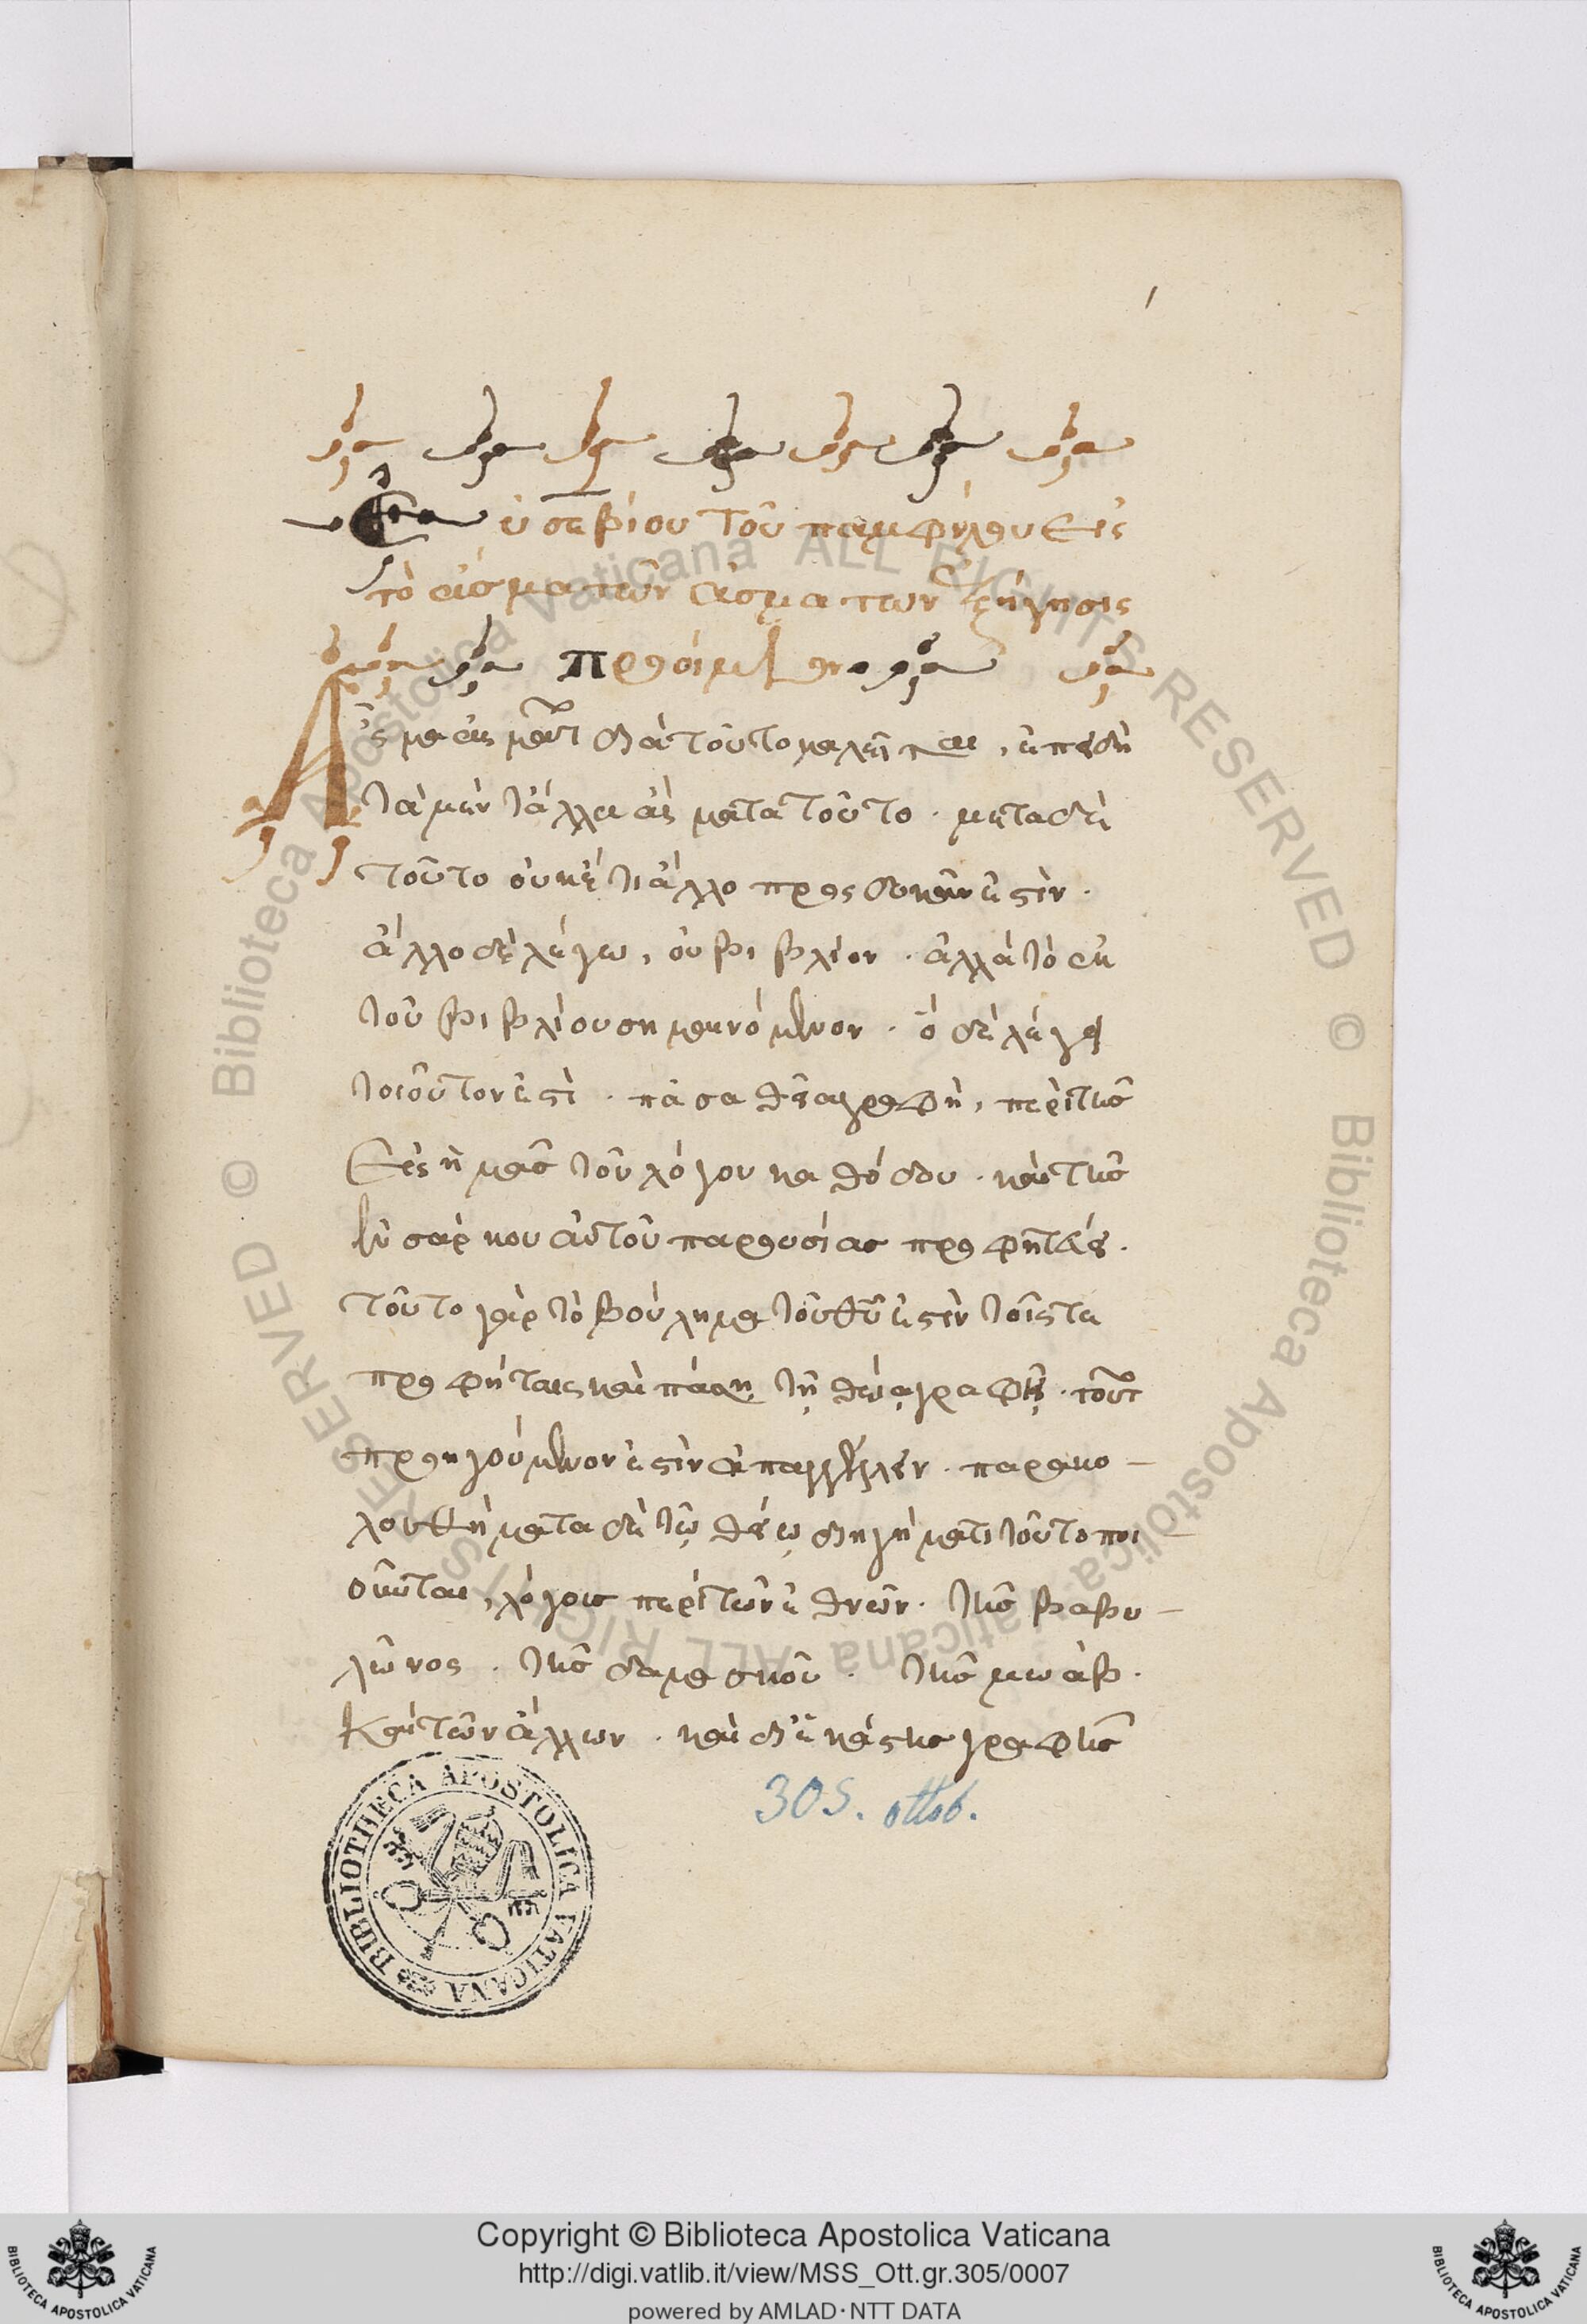 Εὐσεβίου τοῦ παμφίλου Εἰς
τὸ ἆσμα τῶν ἀσμάτων ἐξήγησις
προοίμιον
Ἆσμα ἀσμάτων διὰ τοῦτο καλεῖται, ἐπειδὴ
τὰ μὲν ἄλλα ἄσματα τοῦτο. μετὰ δὲ
τοῦτο οὐκέτι ἄλλο προσδοκᾶν ἐστιν.
ἄλλο δὲ λέγω, οὐ βιβλίον. ἀλλὰ τὸ ἐκ
τοῦ βιβλίου σημαινόμενον. ὃ δὲ λέγει
τοιοῦτον ἐστὶ. πᾶσα θεία γραφὴ, περὶ τῆς
Εἰς ἡμᾶς τοῦ λόγου καθόδου. καὶ τῆς
ἐνσάρκου αὐτοῦ παρουσίας προφητεύει.
τοῦτο γὰρ τὸ βούλημα τοῦ θῦ ἐστὶν τοῖς τε
προφήταις καὶ πάσῃ τῇ θείᾳ γραφῇ. τοῦτο
προηγούμενον ἐστὶν ἀπαγγέλλειν. παρακο-
λουθήματα δὲ τῷ θείῳ διηγήματι τοῦτο ποι-
οῦνται, λόγοις περὶ τῶν ἐθνῶν. τῆς βαβυ-
λῶνος. τῆς δαμασκοῦ. τῆς μωάβ.
Καὶ τῶν ἄλλων. καὶ δι' ἑκάστης γραφῆς
305. ottob.
BIBLIOTHECA APOSTOLICA VATICANA
Copyright © Biblioteca Apostolica Vaticana
http://digi.vatlib.it/view/MSS_Ott.gr.305/0007
powered by AMLAD·NTT DATA